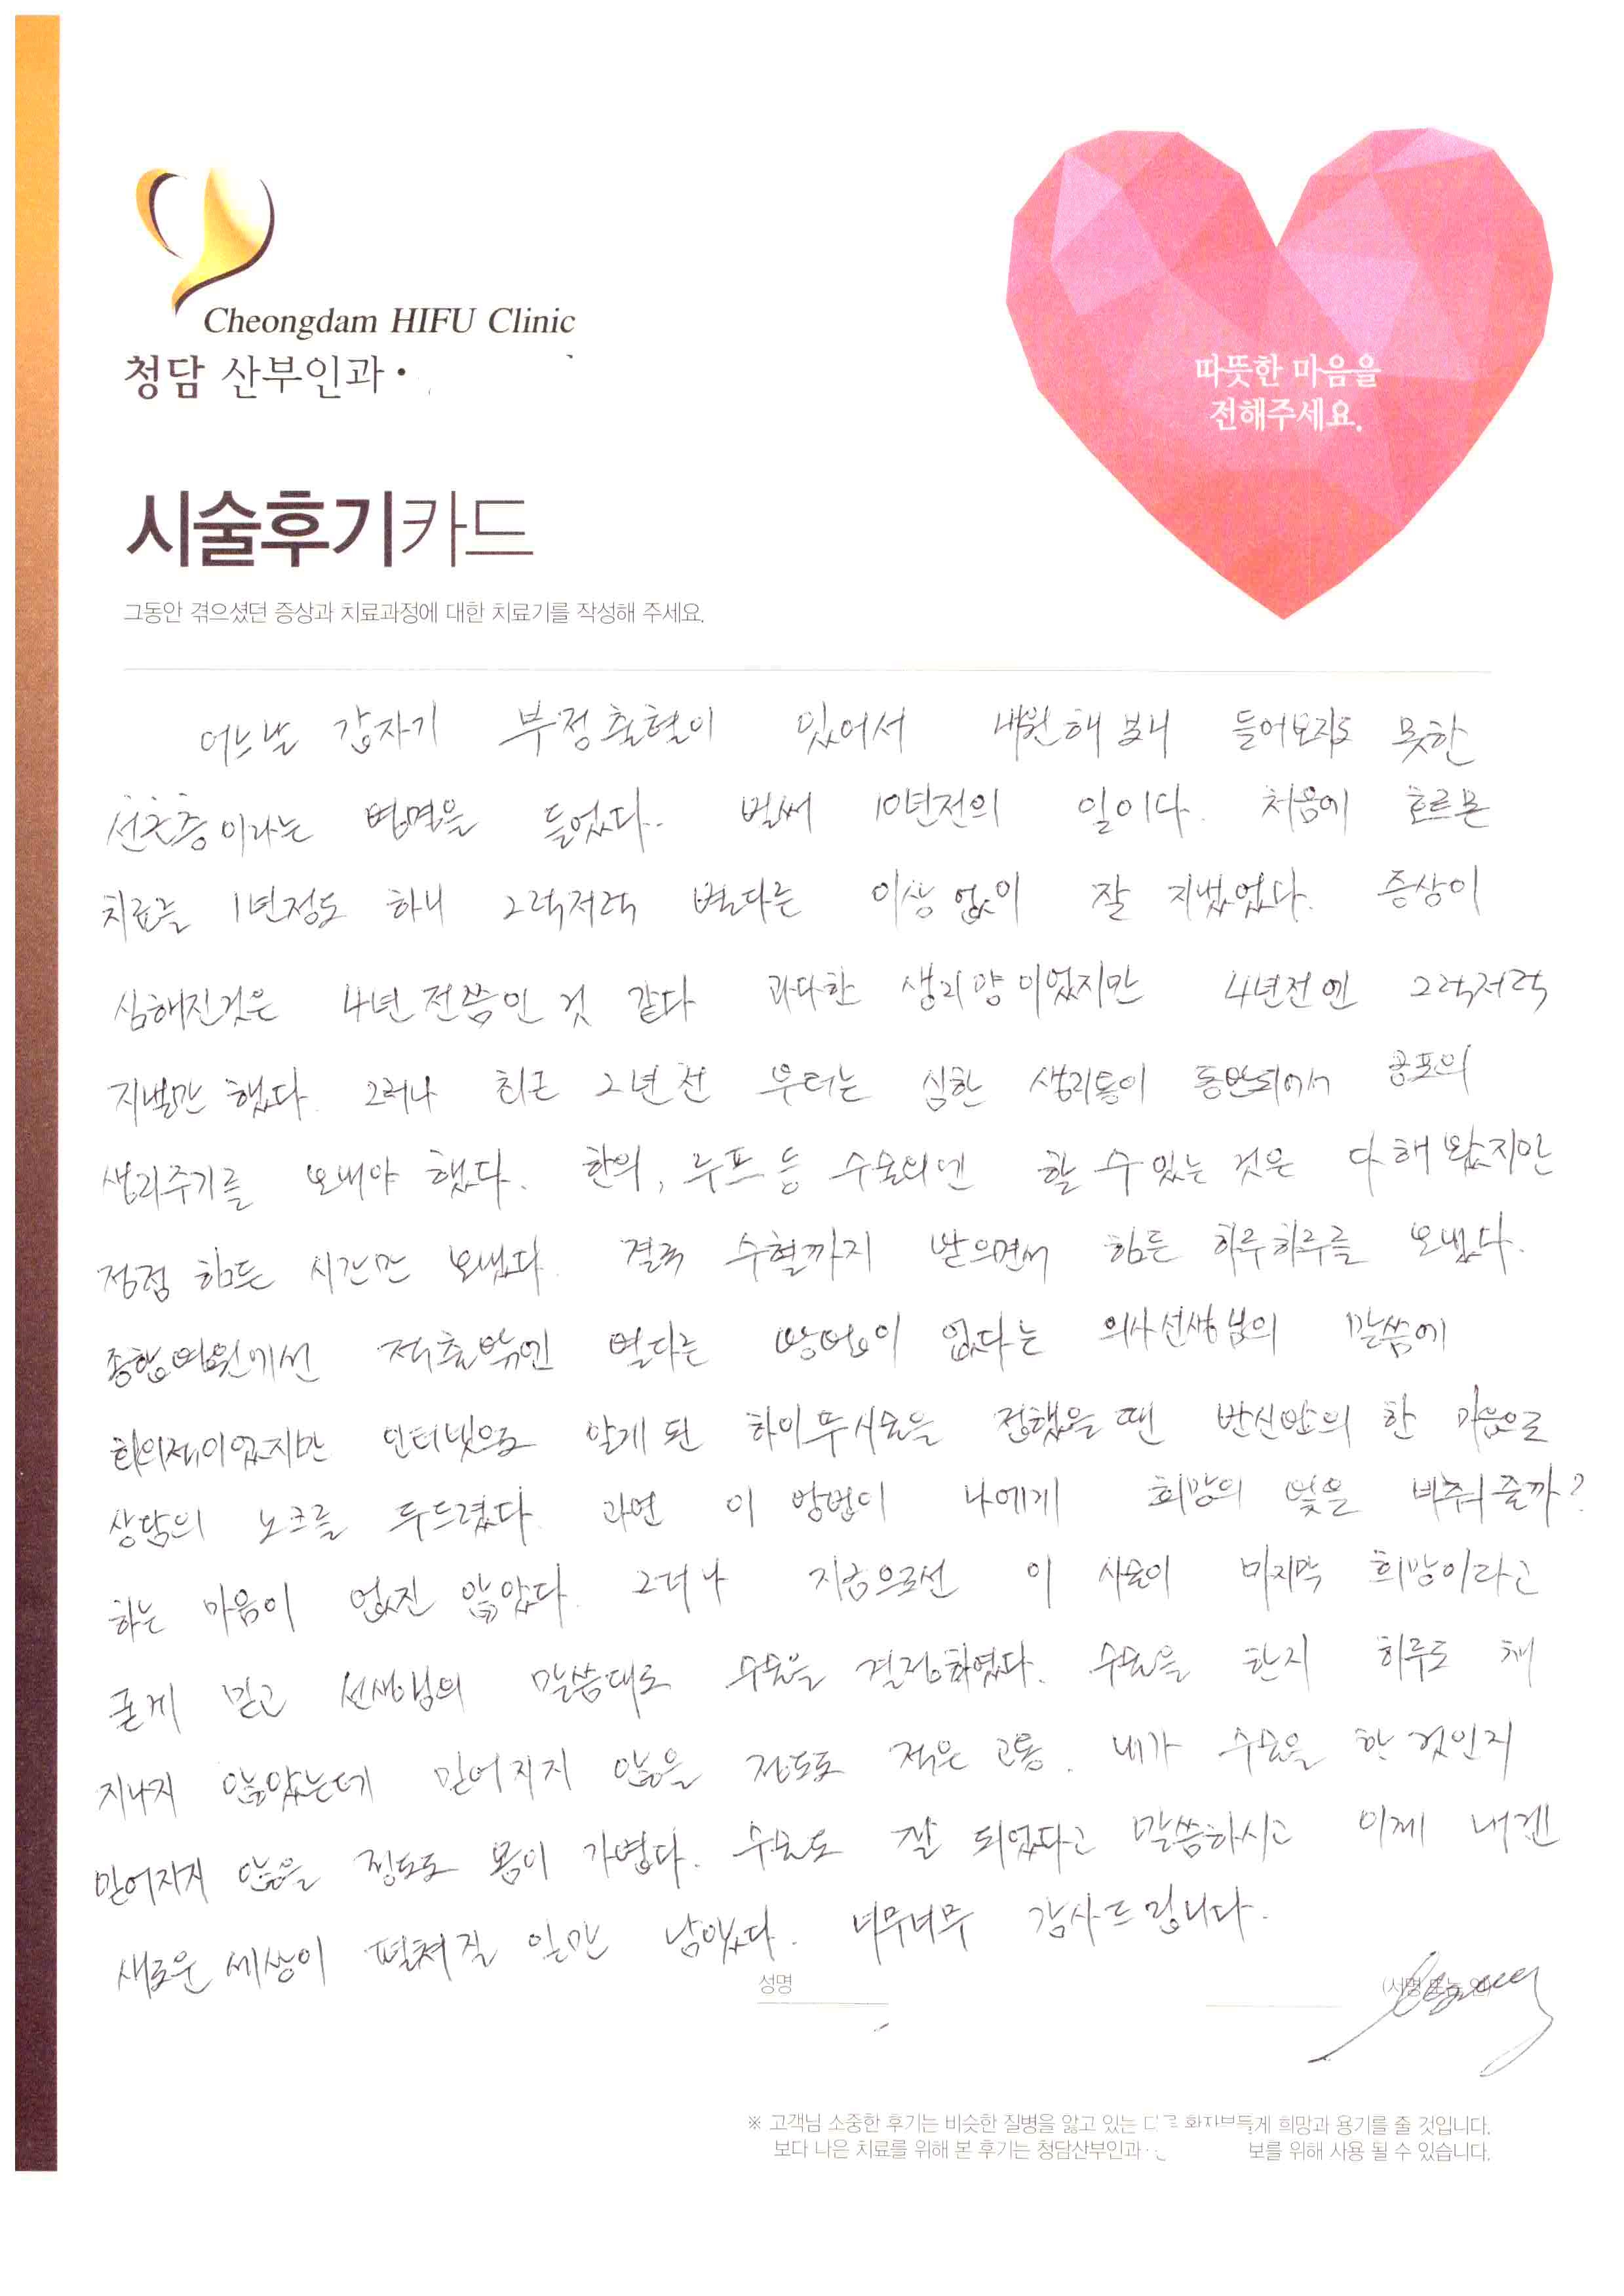 Cheongdam HIFU Clinic
청담 산부인과
따뜻한 마음을
전해주세요.
시술후기카드
그동안 겪으셨던 증상과 치료과정에 대한 치료기를 작성해 주세요.
어느날 갑자기 부정출혈이 있어서 내원해보니 들어보지도 못한
선근증이라는 병명을 들었다. 벌써 10년전의 일이다. 처음에 호르몬
치료를 1년정도 하니 그럭저럭 별다른 이상 없이 잘 지냈었다. 증상이
심해진것은 4년 전쯤인 것 같다 과다한 생리양이었지만 4년전엔 그럭저럭
지낼만 했다. 그러나 최근 2년 전 부터는 심한 생리통이 동반되어서 공포의
생리주기를 보내야 했다. 한의, 루프 등 수술외엔 할 수 있는 것은 다 해 봤지만
점점 힘든 시간만 보냈다. 결국 수혈까지 받으면서 힘든 하루하루를 보냈다.
종합병원에선 적출밖엔 별다른 방법이 없다는 의사선생님의 말씀에
회의적이었지만 인터넷으로 알게 된 하이푸시술을 접했을 땐 반신반의 한 마음으로
상담의 노크를 두드렸다. 과연 이 방법이 나에게 희망의 빛을 비춰 줄까?
하는 마음이 없진 않았다. 그러나 지금으로선 이 시술이 마지막 희망이라고
굳게 믿고 선생님의 말씀대로 수술을 결정하였다. 수술을 한지 하루도 채
지나지 않았는데 믿어지지 않을 정도로 적은 고통. 내가 수술을 한 것인지
믿어지지 않을 정도로 몸이 가볍다. 수술도 잘 되었다고 말씀하시고 이제 내겐
새로운 세상이 펼쳐질 일만 남았다. 너무너무 감사드립니다.
성명 (서명 또는 인)
※ 고객님 소중한 후기는 비슷한 질병을 앓고 있는 다른 환자분들게 희망과 용기를 줄 것입니다.
보다 나은 치료를 위해 본 후기는 청담산부인과 보를 위해 사용 될 수 있습니다.